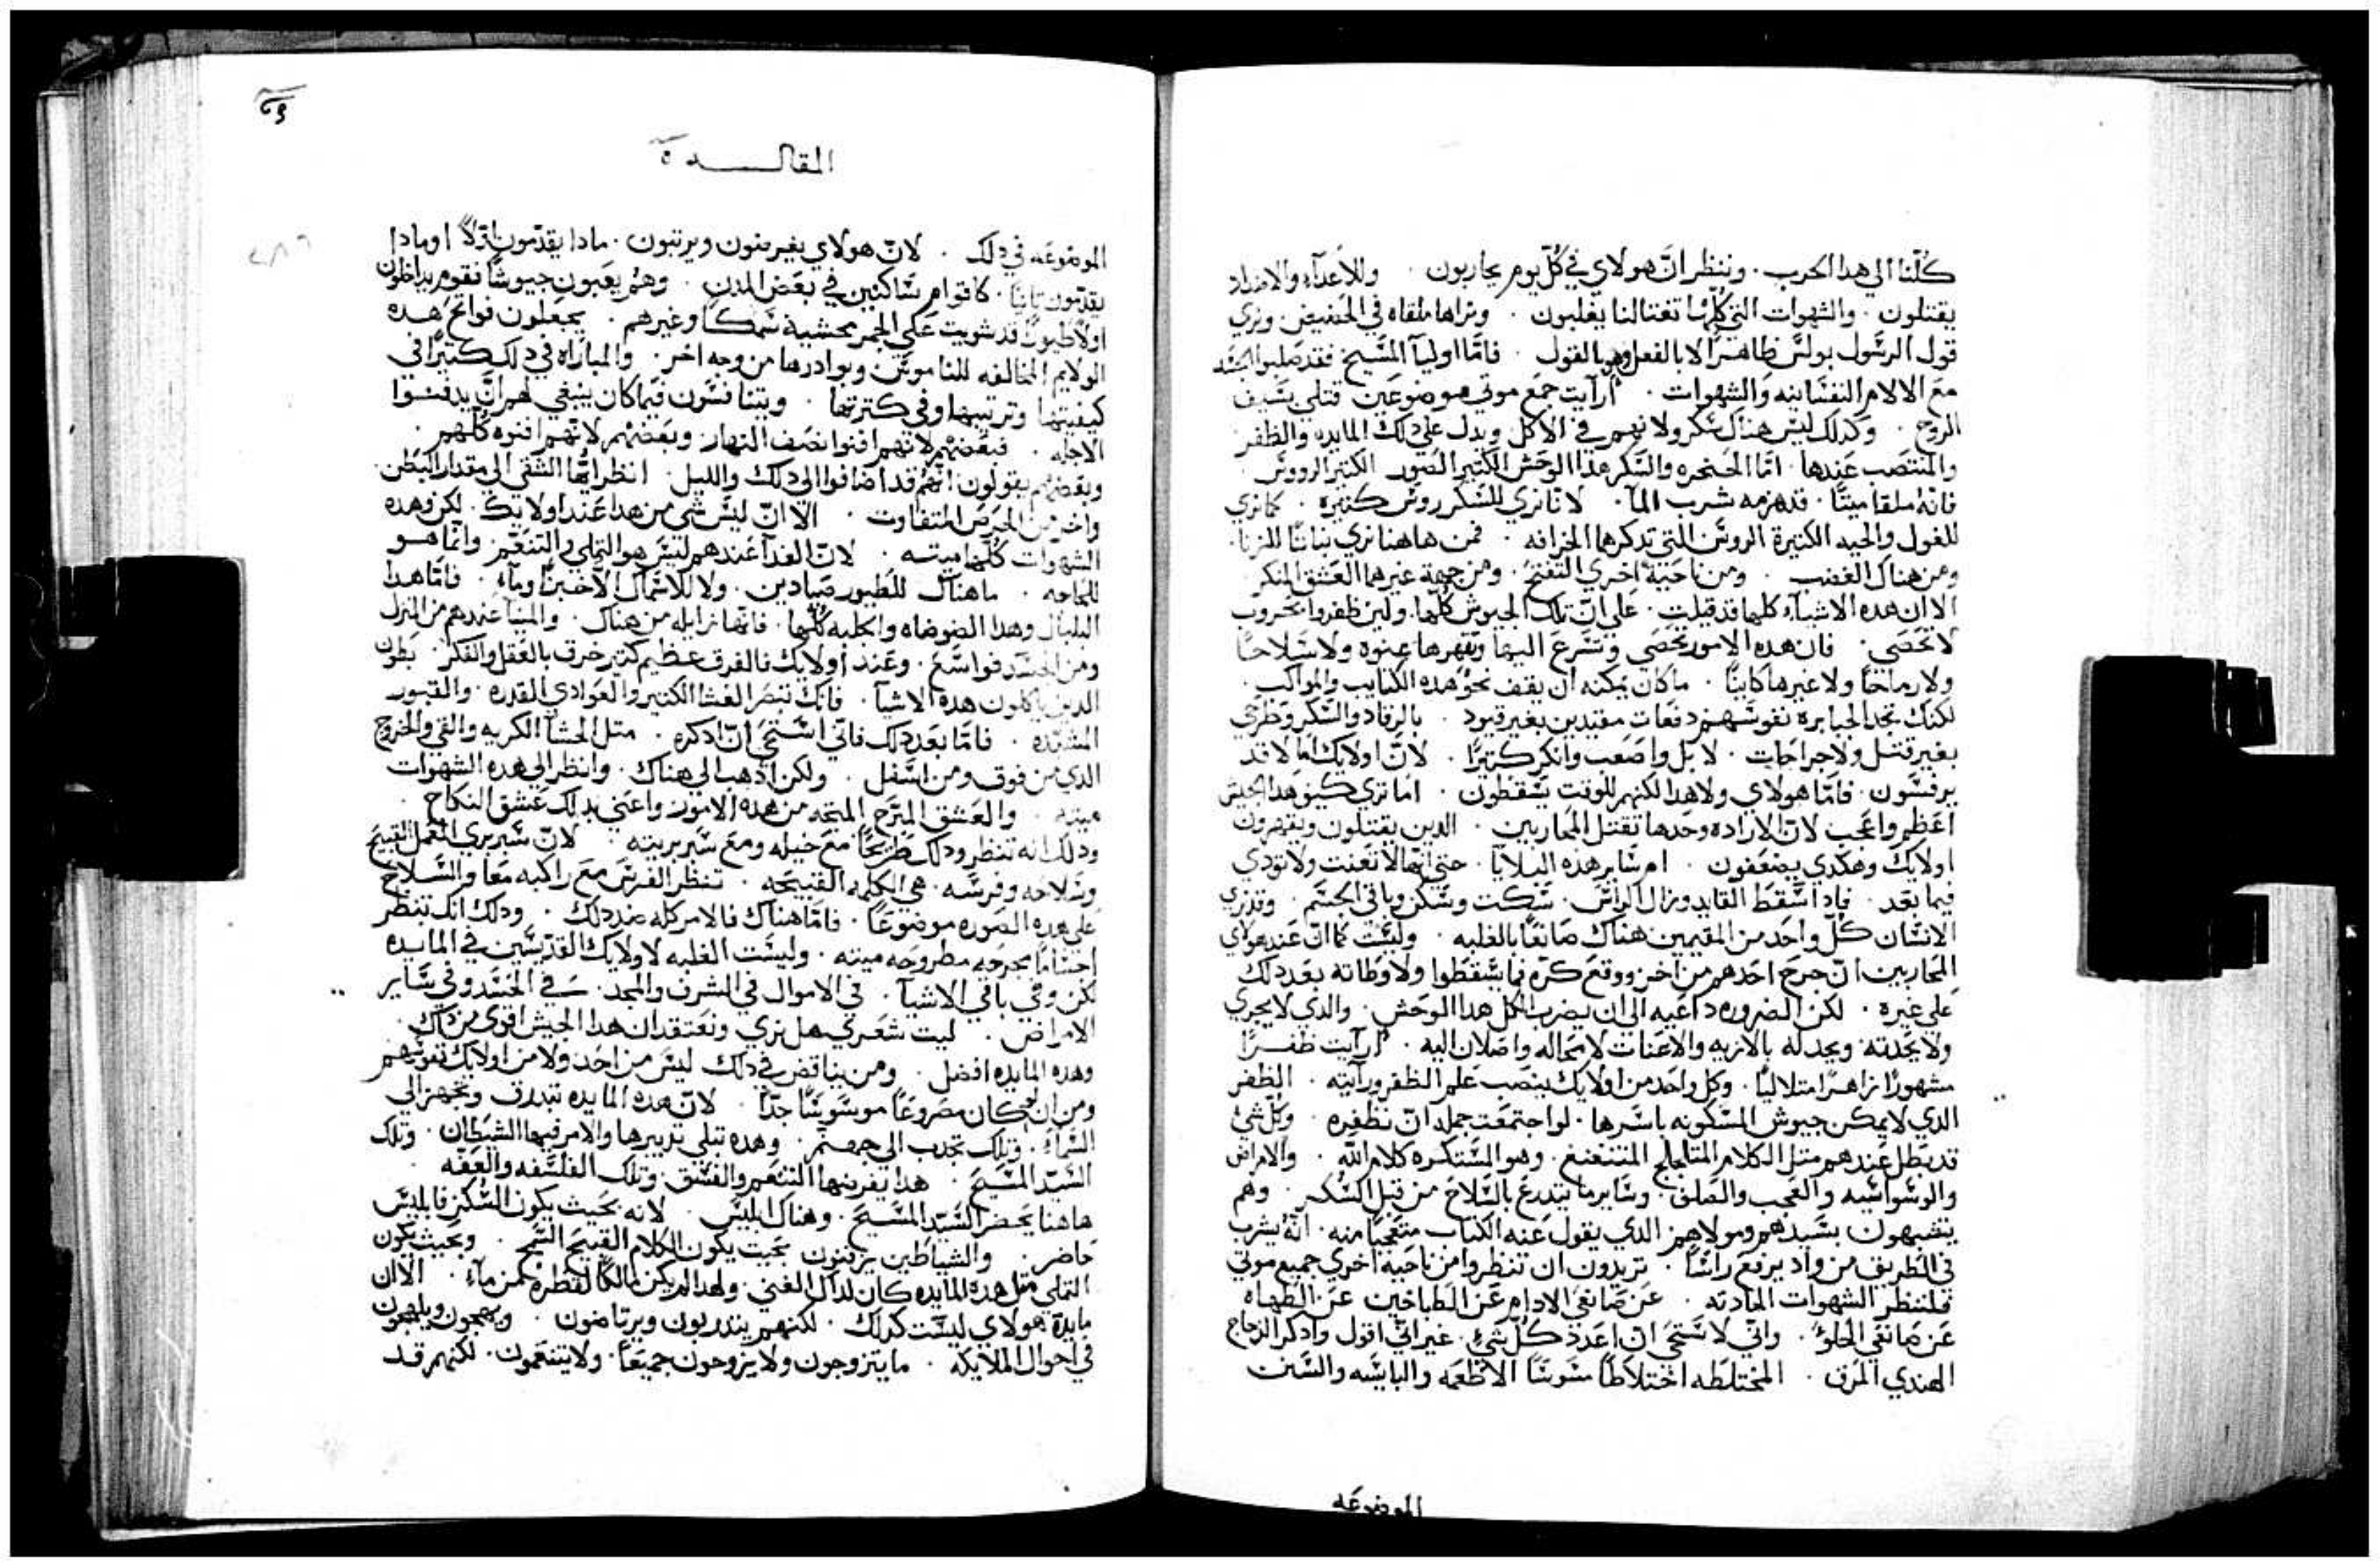 كلّنا الي هدا الحرب. وننظر انّ هولاي في كلّ يوم يحاربون. وللأعدآء والاضداد
يقتلون. والشهوات التي كلّما تغتالنا يغلبون. ونراها ملقاه في الحضيض. ونري
قول الرسول بولس ظاهرًا لا بالفعل بالقول. فامّا اوليآ المسيح فقد صلبوا الجثه
مع الالام النفسانيه والشهوات. أرآيت جمع موتي موضوعين قتلي بسيف
الروح. وكدلك ليس هناك سكر ولا نهم في الاكل ويدل علي دلك المايده والظفر
والمنتصب عندها. امّا الحنجره والسكر هدا الوحش الكثير الصور الكثير الرووس
فانه ملقا ميتًا. قد هزمه شرب المآ. لانّا نري للسكر روس كثيره. كما نري
للغول والحيه الكثيرة الروس التي تدكرها الخرافه. فمن هاهنا نري نباتًا للزنا.
ومن هناك الغضب. ومن ناحية اخري التفتح. ومن جهة غيرهما العشق المنكر
الا ان هده الاشيآء كلها قد قتلت. علي انّ تلك الجيوش كلّها. ولين ظفروا بحروب
لا تحصي. فان هده الامور تحصي وتسرع اليها وتقهرها عنوه ولا سلاحًا
ولا رماحًا ولا غيرها كاينًا. ما كان يمكنه ان يقف نحو هده الكتايب والمواكب.
لكنك تجد الجبابره نفوسهم دفعات مقيدين بغير قيود. بالرقاد والسكر وطرحي
بغير قتل ولا جراحات. لا بل واصعب وانكر كثيرًا. لانّ اولايك امّا لا قد
يرفسون. فامّا هولاي ولا هدا لكنهم للوقت يسقطون. اما تري كيف هدا الجيش
اعظم واعجب لان الاراده وحدها تقتل المحاربين. الدين يقتلون ويقهرون
اولايك وهكدي يضعفون. ام ساير هده البلايآ. حتي انها لا تعنت ولا تودي
فيما بعد. فادا سقط القايد وزال الراس. سكت وسكن وباقي الجسم. وقد نري
الانسان كلّ واحد من المقيمين هناك صانعًا بالغلبه. وليست كما انّ عند هولاي
المحاربين انّ جرح احدهم من اخر ووقع كره فما سقطوا ولا وطاته بعد دلك
علي غيره. لكن الضروره داعيه الي ان يضرب الكل هدا الوحش. والدي لا يجري
ولا يجدته ويجدله بالازيه والاعنات لا محاله واصلان اليه. أرآيت ظفــرًا
مشهورًا زاهرًا متلاليًا. وكل واحد من اولايك ينصب علم الظفر ورآيته. الظفر
الدي لا يمكن جيوش المسكونه باسرها. لو اجتمعت جملة ان تظفره. وكلّ شئ
قد بطل عندهم متل الكلام المتلجلج المتنغنغ. وهو المستكره كلام الله. والامراض
والوسواسيه والعجب والصلف. وساير ما يتدرع بالسلاح من قبل السكر. وهم
يتشبهون بسيدهم ومولاهم الدي يقول عنه الكتاب متعجبًا منه. انّه يشرب
في الطريق من واد يرفع راسًا. تريدون ان تنظروا من ناحية اخري جميع موتي
فلننظر الشهوات الحادثه. عن صانعي الادام عن الطباخين عن الطهاه
عن صانعي الحلوْ. وانّي لاستحي ان اعدد كلّ شئ. غير انّي اقول وادكر الدجاج
الهندي المرق. المختلطه اختلاطًا مشوشًا الاطعمه واليابسه والسنن
الموضوعه
المقالـــــــده ة
الموضوعه في دلك. لانّ هولاي يغيرصون ويرتبون. مادا يقدّمون اوّلاً او مادا
يقدّمون تانيًا. كاقوام ساكنين في بعض المدن. وهم يعبون جيوشًا فقوم يداخلون
اولاً طيورًا قد شويت علي الجمر محشية سمكًا وغيرهم. يجعلون فواتح هده
الولايم المخالفه للناموس وبوادرها من وجه اخر. والمباراه في دلك كثيرًا في
كيفيتها وترتيبها وفي كثرتها. ويتنافسون فيما كان ينبغي لهم انّ يدفنــوا
لاجله. فبعضهم لانّهم افنوا نصف النهار. وبعضهم لانّهم افنوه كلّهم.
وبعضهم يقولون انّهم قد اضافوا الي دلك والليل. انظر ايّها الشقي الي مقدار البطن
واخرس الحرص المتفاوت. الّا انّ ليس شي من هدا عند اولايك. لكن وهده
الشهوات كلّها ميته. لانّ الغدآ عندهم ليس هو التملي والتنعّم. وانّما هــو
للحاجه. ما هناك للطيور صيادين. ولا للاسماك الّا خبزًا ومآء. فامّا هدا
البلبال وهدا الضوضاه والجلبه كلّها. فانّها زايله من هناك. والمينآ عندهم من المنزل
ومن الجسد فواسع. وعند اولايك فالفرق عظيم كثير خرق بالعقل والفكر. بطون
الدين ياكلون هده الاشيآ. فانّك تبصر الغشا الكثير والعوادي القدره. والقبور
المشيّده. فامّا بعد دلك فانّي استحي انّ ادكره. متل الجشآ الكريه والقي والخروج
الدي من فوق ومن اسفل. ولكن ادهب الي هناك. وانظر الي هده الشهوات
ميته. والعشق المبرّح المتجه من هده الامور واعني بدلك عشق النكاح.
ودلك انه تنظر ودلك طريحًا مع خيله ومع سريريته. لانّ سرير ري العمل القبيح
وسلاحه وفرسه. هي الكلمه القبيحه. تنظر الفرس مع راكبه معًا والسلاح
علي هده الصوره موضوعًا. فامّا هناك فالامر كله ضد دلك. ودلك انّك تنظر
اجسامًا مجرحه مطروحه ميته. وليست الغلبه لاولايك القدّيسين في المايده
لكن وفي باقي الاشيآ. في الاموال في الشرف والمجد. في الجسد وفي ساير
الامراض. ليت شعري هل نري ونعتقد ان هدا الجيش اقوي من داك
وهده المايده افضل. ومن يناقض في دلك ليس من احد ولا من اولايك نفوسهم
ومن ان كان مصروعًا موسوسًا جدًّا. لانّ هده المايده تبدرق وتجهز الي
السّماء. وتلك تجدب الي جهنّم. وهده تتلي تدبيرها والامر فيها الشيطان. وتلك
السّيد المسيح. هدا يفرضها التنعم والفسق. وتلك الفلسفه والعفه.
هاهنا يحضر السّيد المسيح. وهناك ابليس. لانه بحيث يكون السكر فابليس
حاضر. والشياطين يزفنون بحيت يكون الكلام القبيح السمج. وبحيث يكون
التملي متل هده المايده كان لداك الغني. ولهدا لم يكن مالكًا لقطره من مآء. الّا ان
مايدة هولاي ليست كدلك. لكنهم يتدربون ويرتاضون. ويهجون ويلهجون
في احوال الملايكه. ما يتزوجون ولا يزوجون جميعًا. ولا يتنعمون. لكنهم قد